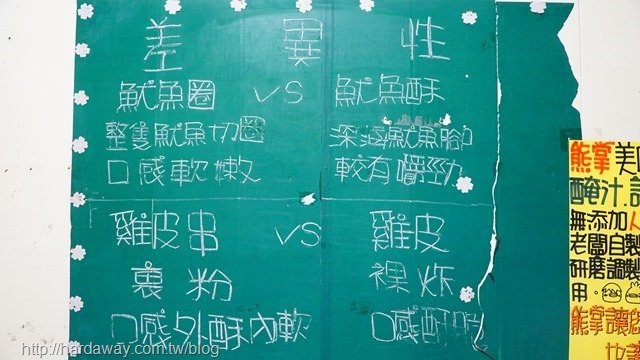 差異性
魷魚圈 VS 魷魚酥
整隻魷魚切圈 深海魷魚腳
口感軟嫩 較有嚼勁
雞皮串 VS 雞皮
裹粉 裸炸
口感外酥內軟 口感酥脆
熊掌美
醃汁.
無添加
老闆自製
研磨調製
用.
熊掌讓
http://hardaway.com.tw/blog